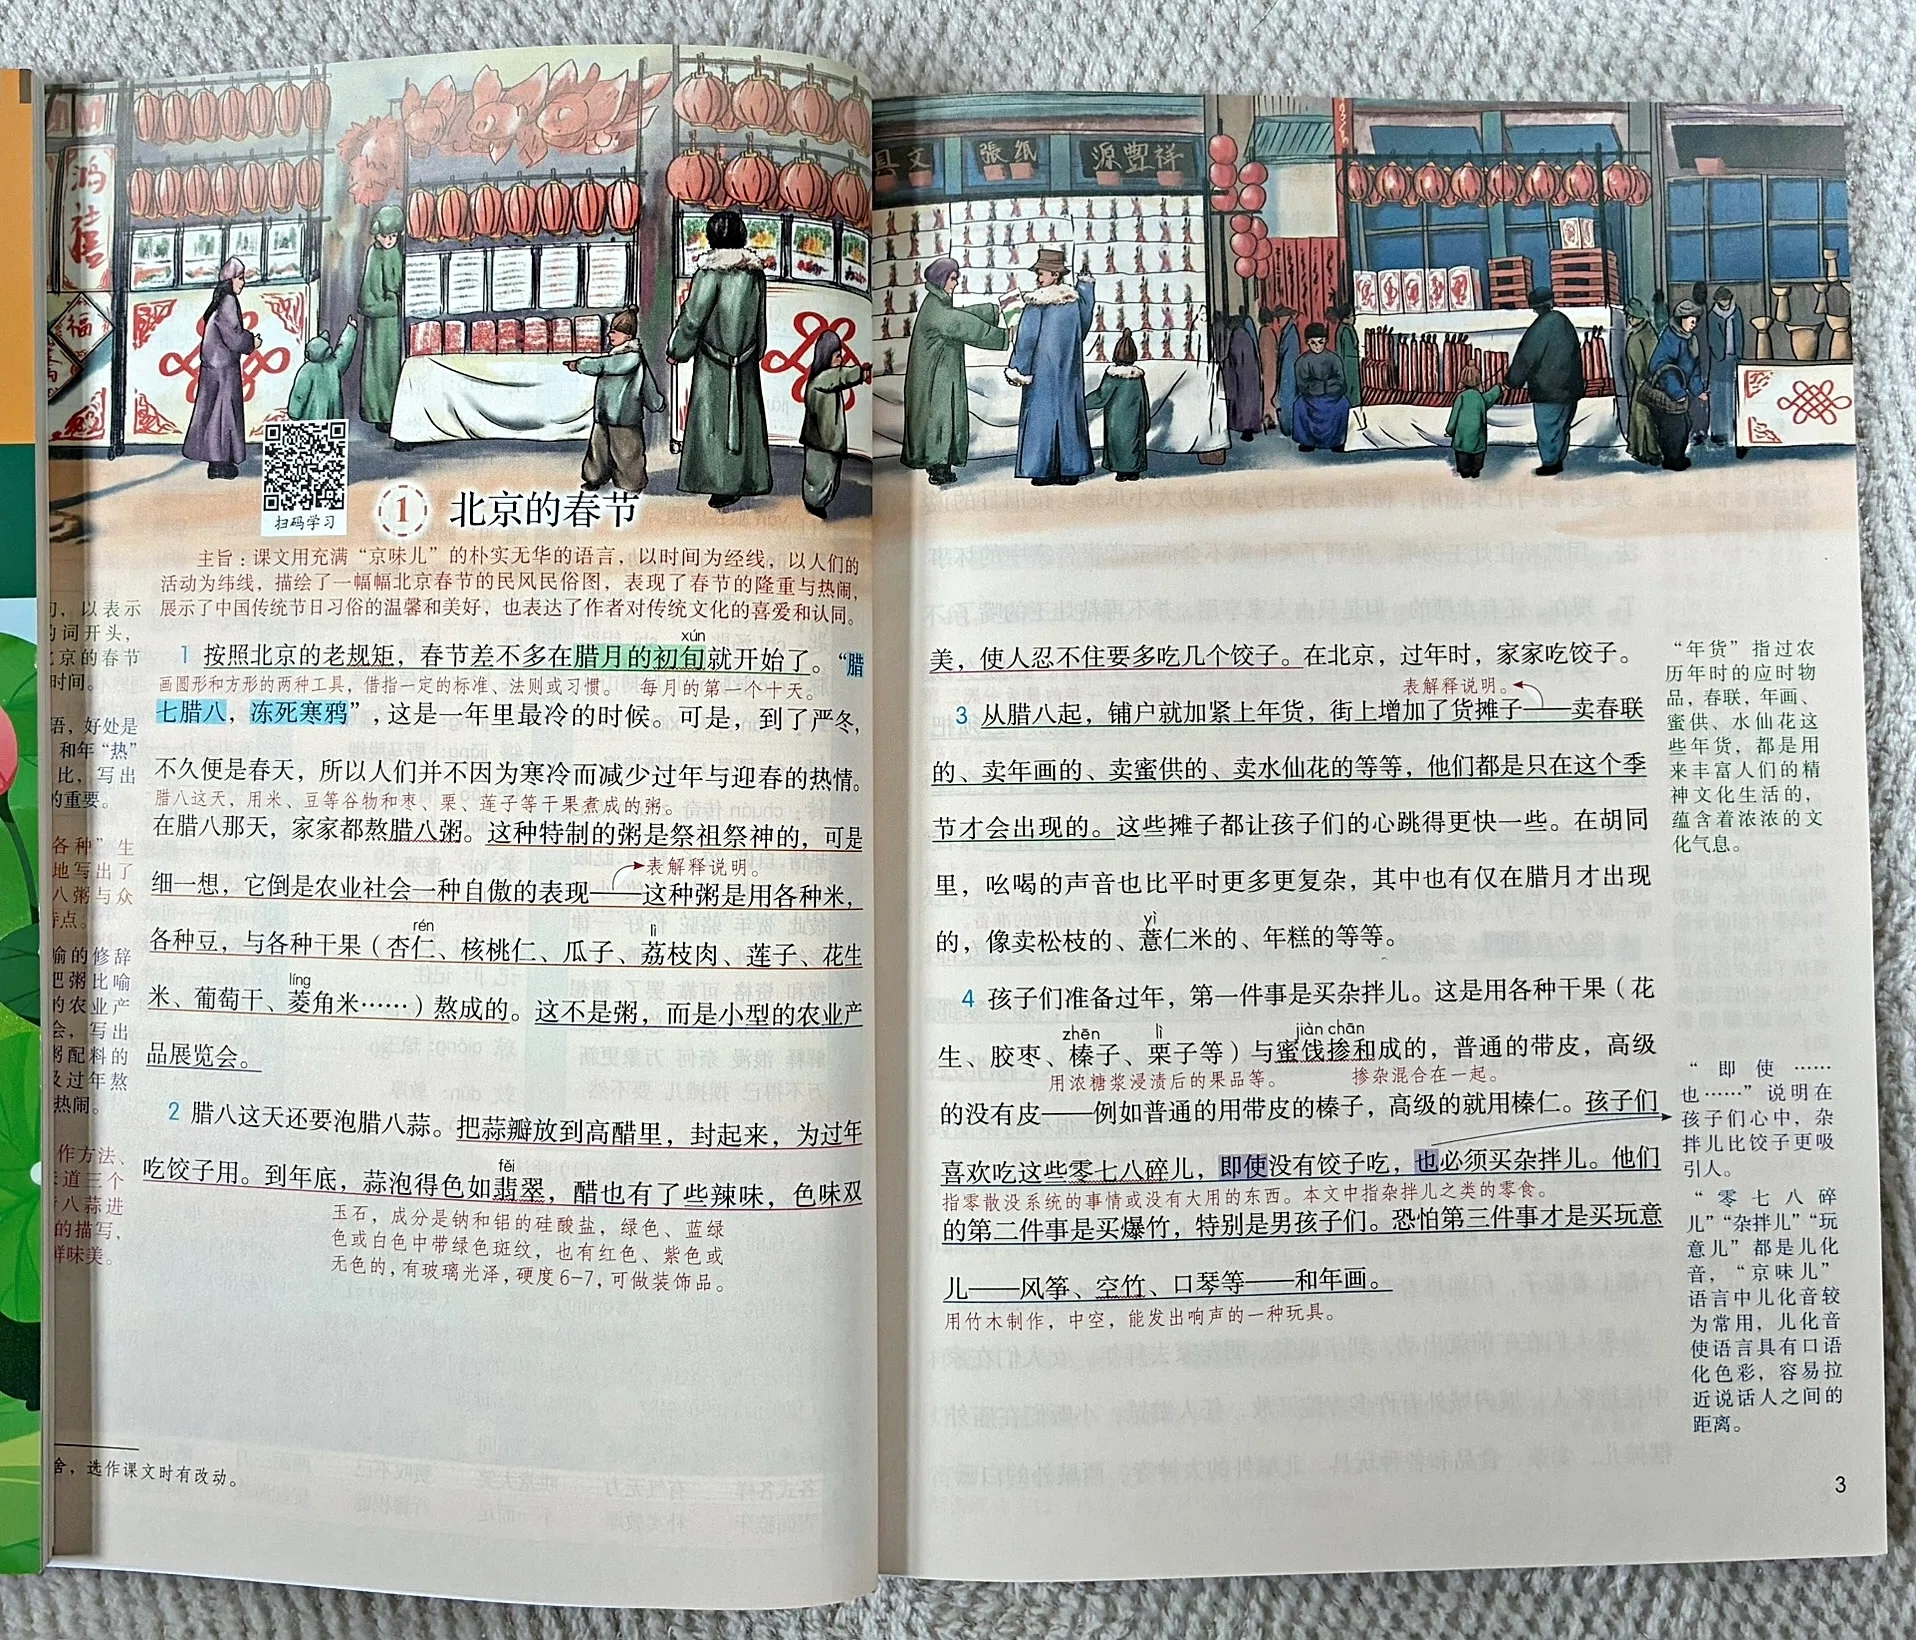 鸿
禧
福
具文
張紙
源豐祥
扫码学习
1 北京的春节
主旨：课文用充满“京味儿”的朴实无华的语言，以时间为经线，以人们的
活动为纬线，描绘了一幅幅北京春节的民风民俗图，表现了春节的隆重与热闹，
展示了中国传统节日习俗的温馨和美好，也表达了作者对传统文化的喜爱和认同。
xún
1 按照北京的老规矩，春节差不多在腊月的初旬就开始了。“腊
画圆形和方形的两种工具，借指一定的标准、法则或习惯。 每月的第一个十天。
七腊八，冻死寒鸦”，这是一年里最冷的时候。可是，到了严冬，
不久便是春天，所以人们并不因为寒冷而减少过年与迎春的热情。
腊八这天，用米、豆等谷物和枣、栗、莲子等干果煮成的粥。
在腊八那天，家家都熬腊八粥。这种特制的粥是祭祖祭神的，可是
表解释说明。
细一想，它倒是农业社会一种自傲的表现——这种粥是用各种米，
rén lì
各种豆，与各种干果（杏仁、核桃仁、瓜子、荔枝肉、莲子、花生
líng
米、葡萄干、菱角米……）熬成的。这不是粥，而是小型的农业产
品展览会。
2 腊八这天还要泡腊八蒜。把蒜瓣放到高醋里，封起来，为过年
fěi
吃饺子用。到年底，蒜泡得色如翡翠，醋也有了些辣味，色味双
玉石，成分是钠和铝的硅酸盐，绿色、蓝绿
色或白色中带绿色斑纹，也有红色、紫色或
无色的，有玻璃光泽，硬度6-7，可做装饰品。
，以表示
词开头，
京的春节
时间。
语，好处是
和年“热”
比，写出
的重要。
各种”生
地写出了
八粥与众
特点。
喻的修辞
把粥比喻
的农业产
会，写出
粥配料的
及过年熬
热闹。
作方法、
道三个
八蒜进
的描写，
鲜味美。
舍，选作课文时有改动。
美，使人忍不住要多吃几个饺子。在北京，过年时，家家吃饺子。
表解释说明。
3 从腊八起，铺户就加紧上年货，街上增加了货摊子——卖春联
的、卖年画的、卖蜜供的、卖水仙花的等等，他们都是只在这个季
节才会出现的。这些摊子都让孩子们的心跳得更快一些。在胡同
里，吆喝的声音也比平时更多更复杂，其中也有仅在腊月才出现
yì
的，像卖松枝的、薏仁米的、年糕的等等。
4 孩子们准备过年，第一件事是买杂拌儿。这是用各种干果（花
zhēn lì jiàn chān
生、胶枣、榛子、栗子等）与蜜饯掺和成的，普通的带皮，高级
用浓糖浆浸渍后的果品等。 掺杂混合在一起。
的没有皮——例如普通的用带皮的榛子，高级的就用榛仁。孩子们
喜欢吃这些零七八碎儿，即使没有饺子吃，也必须买杂拌儿。他们
指零散没系统的事情或没有大用的东西。本文中指杂拌儿之类的零食。
的第二件事是买爆竹，特别是男孩子们。恐怕第三件事才是买玩意
儿——风筝、空竹、口琴等——和年画。
用竹木制作，中空，能发出响声的一种玩具。
“年货”指过农
历年时的应时物
品，春联，年画、
蜜供、水仙花这
些年货，都是用
来丰富人们的精
神文化生活的，
蕴含着浓浓的文
化气息。
“即使……
也……”说明在
孩子们心中，杂
拌儿比饺子更吸
引人。
“零七八碎
儿”“杂拌儿”“玩
意儿”都是儿化
音，“京味儿”
语言中儿化音较
为常用，儿化音
使语言具有口语
化色彩，容易拉
近说话人之间的
距离。
3